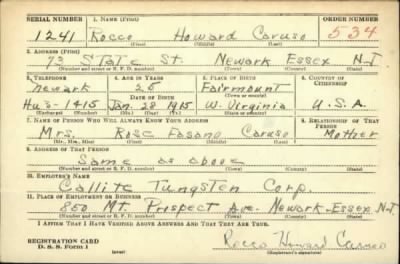 SERIAL NUMBER 1. NAME (Print) ORDER NUMBER
1241 Rocco Howard Caruso 534
(First) (Middle) (Last)
2. ADDRESS (Print)
73 State St. Newark Essex N.J
(Number and street or R. F. D. number) (Town) (County) (State)
3. TELEPHONE 4. AGE IN YEARS 5. PLACE OF BIRTH 6. COUNTRY OF CITIZENSHIP
Newark 25 Fairmount
DATE OF BIRTH (Town or county)
Hu 3-1415 Jan. 28 1915 W. Virginia U.S.A.
(Exchange) (Number) (Mo.) (Day) (Yr.) (State or country)
7. NAME OF PERSON WHO WILL ALWAYS KNOW YOUR ADDRESS 8. RELATIONSHIP OF THAT PERSON
Mrs. Rose Fasano Caruso Mother
(Mr., Mrs., Miss) (First) (Middle) (Last)
9. ADDRESS OF THAT PERSON
Same as above
(Number and street or R. F. D. number) (Town) (County) (State)
10. EMPLOYER'S NAME
Callite Tungsten Corp.
11. PLACE OF EMPLOYMENT OR BUSINESS
850 Mt. Prospect Ave. Newark-Essex N.J.
(Number and street or R. F. D. number) (Town) (County) (State)
I AFFIRM THAT I HAVE VERIFIED ABOVE ANSWERS AND THAT THEY ARE TRUE.
REGISTRATION CARD
D. S. S. Form 1 (over)
Rocco Howard Caruso
(Registrant's signature)